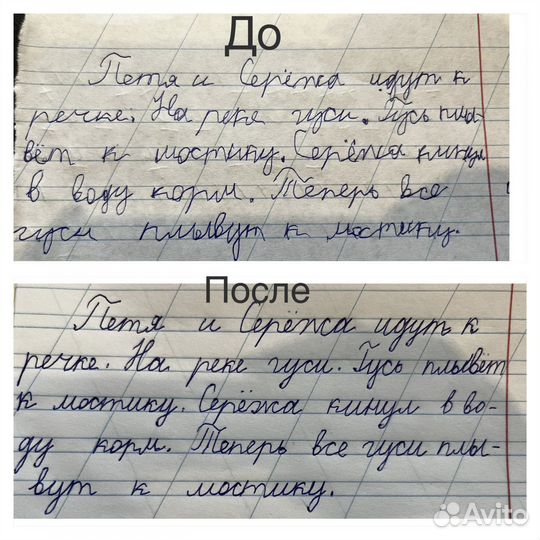 До
Петя и Серёжа идут к
речке. На реке гуси. Гусь плы-
вёт к мостику. Серёжа кинул
в воду корм. Теперь все
гуси плывут к мостику.
После
Петя и Серёжа идут к
речке. На реке гуси. Гусь плывёт
к мостику. Серёжа кинул в во-
ду корм. Теперь все гуси плы-
вут к мостику.
Avito